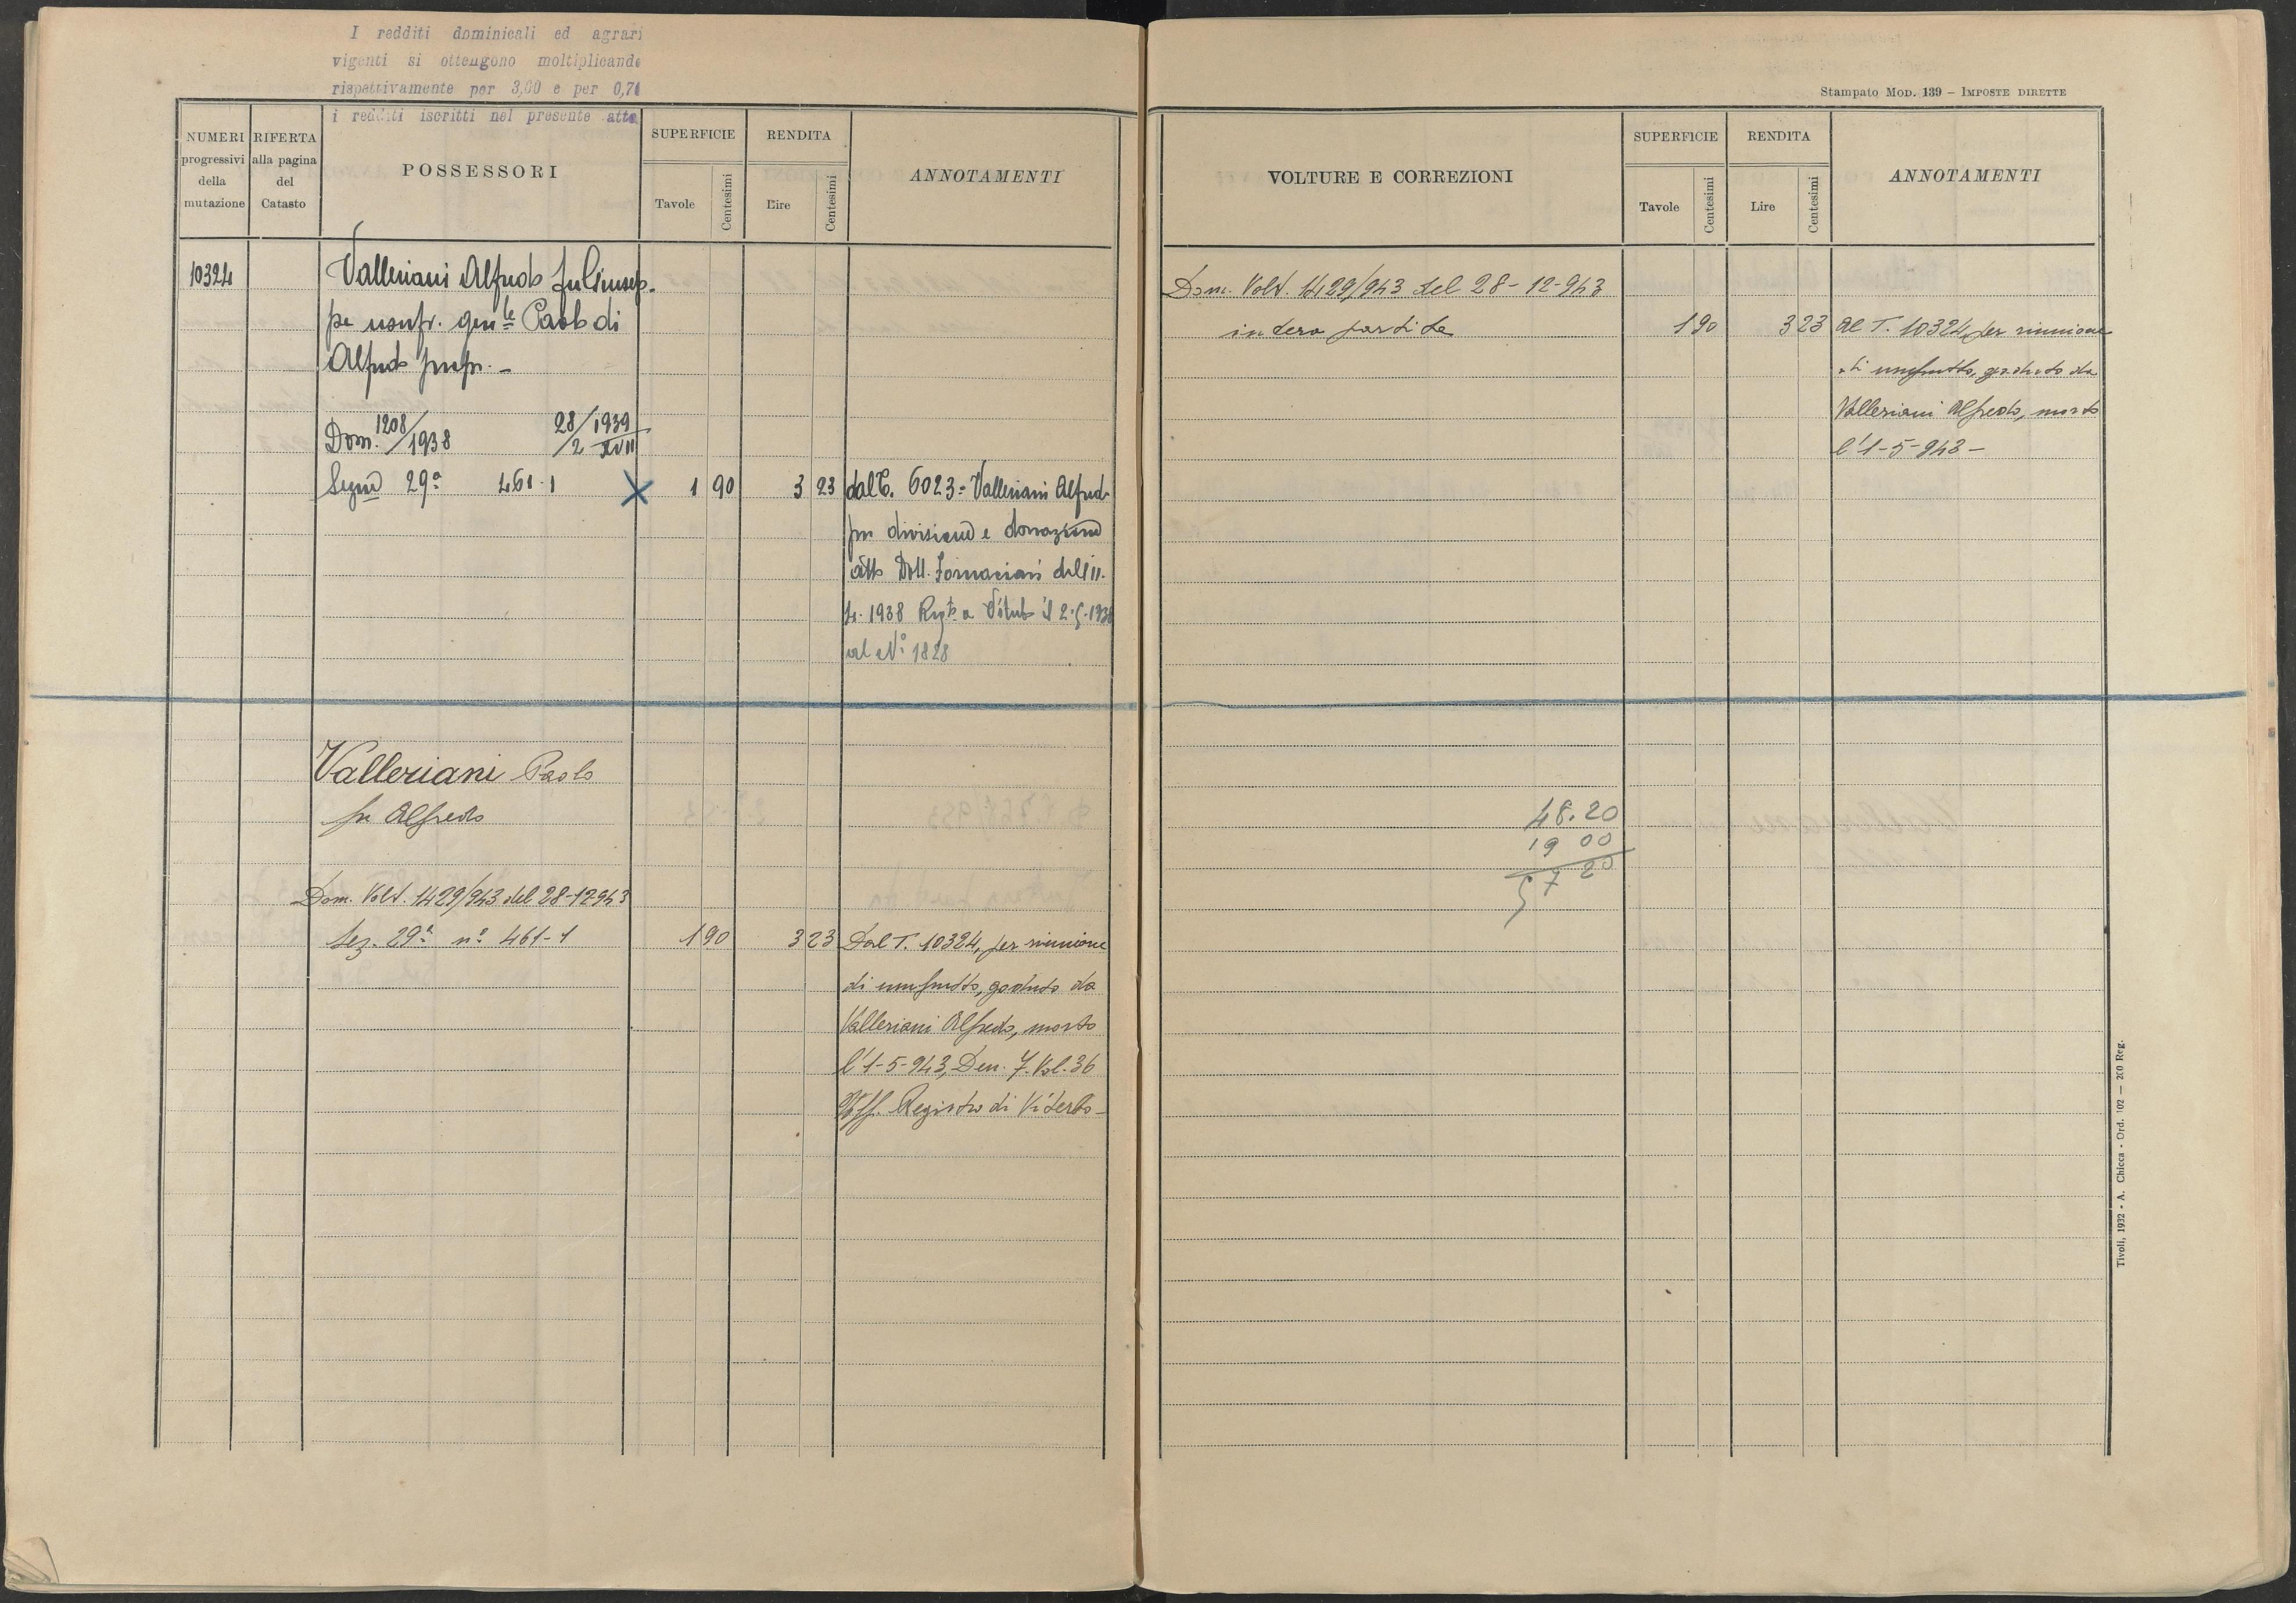 I redditi dominicali ed agrari
vigenti si ottengono moltiplicando
rispettivamente per 3,60 e per 0,71
i redditi iscritti nel presente atto
NUMERI
progressivi
della
mutazione
RIFERTA
alla pagina
del
Catasto
POSSESSORI
SUPERFICIE
Tavole
Centesimi
RENDITA
Lire
Centesimi
ANNOTAMENTI
10324
Valleriani Alfredo fu Giusep-
pe usufr. gen.le Paolo di
Alfredo propr. -
Dom. 1208/1938 28/2 1939 XVII
Sezne 29a 461-1 X 1 90 3 23
dal T. 6023= Valleriani Alfredo
per divisione e donazione
atto Dott. Fornaciari dell'11.
4. 1938 Regto a Viterbo il 2.5.1938
al No 1828
Valleriani Paolo
fu Alfredo
Dom. Volt. 1429/943 del 28-12-943
Sez. 29a no 461-1 1 90 3 23
Dal T. 10324, per riunione
di usufrutto, goduto da
Valleriani Alfredo, morto
l'1-5-943, Den. 7. Vol. 36
Uff. Registro di Viterbo -
Stampato Mod. 139 - Imposte dirette
VOLTURE E CORREZIONI
SUPERFICIE
Tavole
Centesimi
RENDITA
Lire
Centesimi
ANNOTAMENTI
Dom. Volt. 1429/943 del 28-12-943
intera partita 1 90 3 23
Al T. 10324 per riunione
di usufrutto, goduto da
Valleriani Alfredo, morto
l'1-5-943 -
48.20
19 00
57 20
Tivoli, 1932 - A. Chicca - Ord. 102 - 200 Reg.